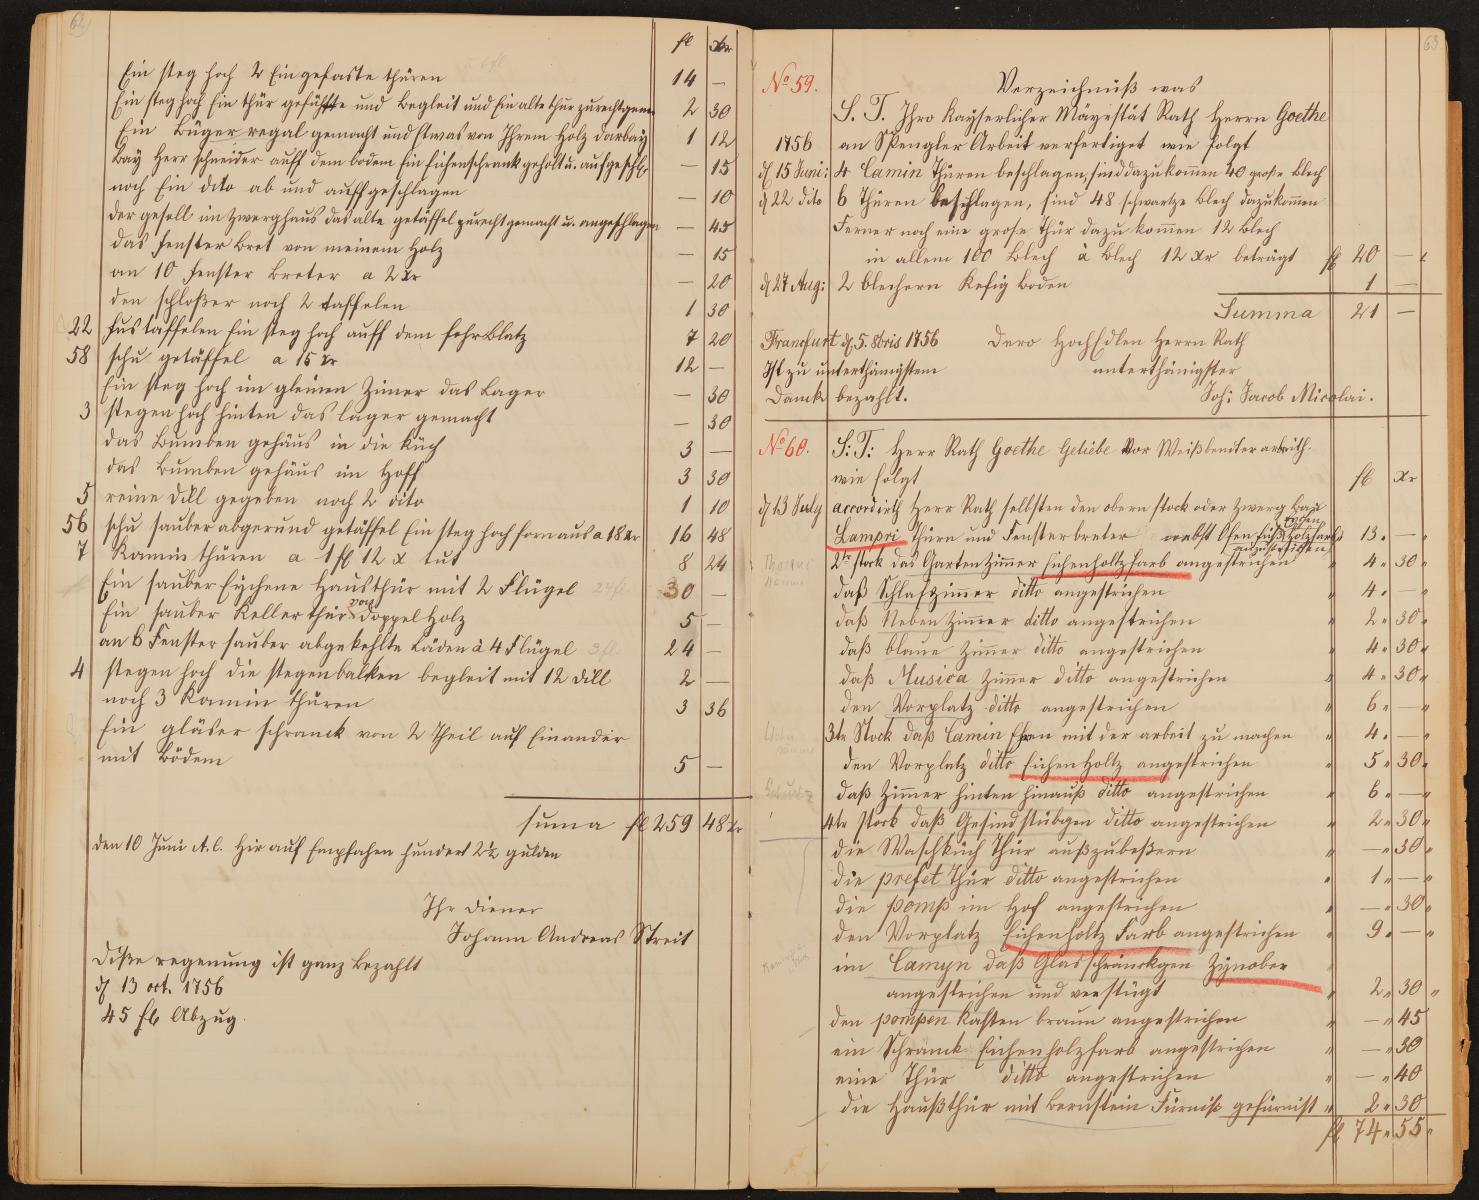 62
fl xr
Ein steg hoch 2 Eingefaste thüren 14 —
Ein steg hoch Ein thür gefühtte und begleit und Ein alte thür zurechtgem 2 30
Ein Büger regal gemacht und Etwas von Ihrem Holz darbay 1 12
bay Herr schneider auff dem bodem Ein Eichenschrank geholt u. aufgeschl — 15
noch Ein dito ab und auffgeschlagen — 10
der gesell im Zwerghaus das alte getäffel zurechtgemacht u. angeschlagen — 45
das fenster bret von meinem Holz — 15
an 10 fenster breter a 2 xr — 20
den schloßer noch 2 taffelen 1 30
22 fustaffelen Ein steg hoch auff dem fohrblatz 7 20
58 schu getäffel a 15 xr 12 —
Ein steg hoch im gleinen Zimer das Lager — 30
3 stegen hoch hinten das lager gemacht — 30
das Bumben gehäus in die Küch 3 —
das Bumben gehäus im Hoff 3 30
5 reine dill gegeben noch 2 dito 1 10
56 schu sauber abgerund getäffel Ein steg hoch fornaus a 18 xr 16 48
7 Kamin thüren a 1 fl 12 x tut 8 24
Ein sauber Eychene Hausthür mit 2 Flügel 24 fl 30 —
Ein sauber Keller thür von doppel Holz 5 —
an 6 Fenster sauber abgekehlte Läden à 4 Flügel 3 fl. 24 —
4 stegen hoch die stegenbalken begleit mit 12 dill 2 —
noch 3 Kamin thüren 3 36
Ein gläser schranck von 2 Theil auf Einander
mit Bödem 5 —
suma fl 259 48 xr
den 10 Juni A.C. hir auf Empfahen hundert 2½ gulden
Ihr diener
Johann Andreas Streit
Diße regenung ist ganz bezahlt
d 13 oct. 1756
45 fl Abzug.
63
No 59. Verzeichnüß was
S. T. Ihro Kayserlicher Mäyestät Rath Herrn Goethe
1756 an Spengler Arbeit verfertiget wie folgt
d 15 Juni: 4 Camin Thüren beschlagen, sind dazu kommen 40 große Blech
d 22 dito 6 Thüren beschlagen, sind 48 schwartze Blech dazukommen
Ferner noch eine große Thür dazu kommen 12 Blech
in allem 100 Blech à Blech 12 xr beträgt fl 20 —
d 27 Aug: 2 blechern Kefig boden 1 —
Summa 21 —
Francfurt d. 5. 8bris 1756 Dero HochEdlen Herrn Rath
Ist zu unterthänigstem unterthänigster
Danck bezahlt. Joh: Jacob Nicolai.
No 60. S: T: Herr Rath Goethe Geliebe Vor Weißbender arbeith.
wie folgt fl xr
d 13 July accordirth Herr Rath selbsten den obern stock oder Zwerg Bau
Lampri Thürn und Fensterbreter nebst Ofen füß Eichen Holtzfarb 13. —
anzustreichen
2te stock das Garten Zimmer Eichenholtzfarb angestrichen 4 " 30 "
daß Schlafzimmer ditto angestrichen 4. — "
daß Neben Zimmer ditto angestrichen 2 " 30 "
daß blaue Zimmer ditto angestrichen 4 " 30 "
daß Musica Zimmer ditto angestrichen " 4 " 30 "
den Vorplatz ditto angestrichen " 6 " — "
3te Stock daß Camin Ehrn mit der arbeit zu machen " 4. — "
den Vorplatz ditto Eichen Holtz angestrichen " 5 " 30 "
daß Zimmer hinten hinauß ditto angestrichen " 6 " — "
4te Stock daß Gesindstübgen ditto angestrichen " 2 " 30 "
die Waschküch Thür außzubeßern " — " 30 "
die prefet Thür ditto angestrichen " 1 " — "
die pomp im Hof angestrichen " — " 30 "
den Vorplatz Eichenholtz Farb angestrichen " 9 " — "
im Camyn daß Glasschränckgen Zynober
angestrichen und verstügt " 2 " 30 "
den pompen Kasten braun angestrichen — " 45
ein Schranck Eichenholzfarb angestrichen " — " 30
eine Thür ditto angestrichen " — " 40
die Haußthür mit Bernstein Fürniß gefürnist " 2 " 30
fl 74 " 55 "